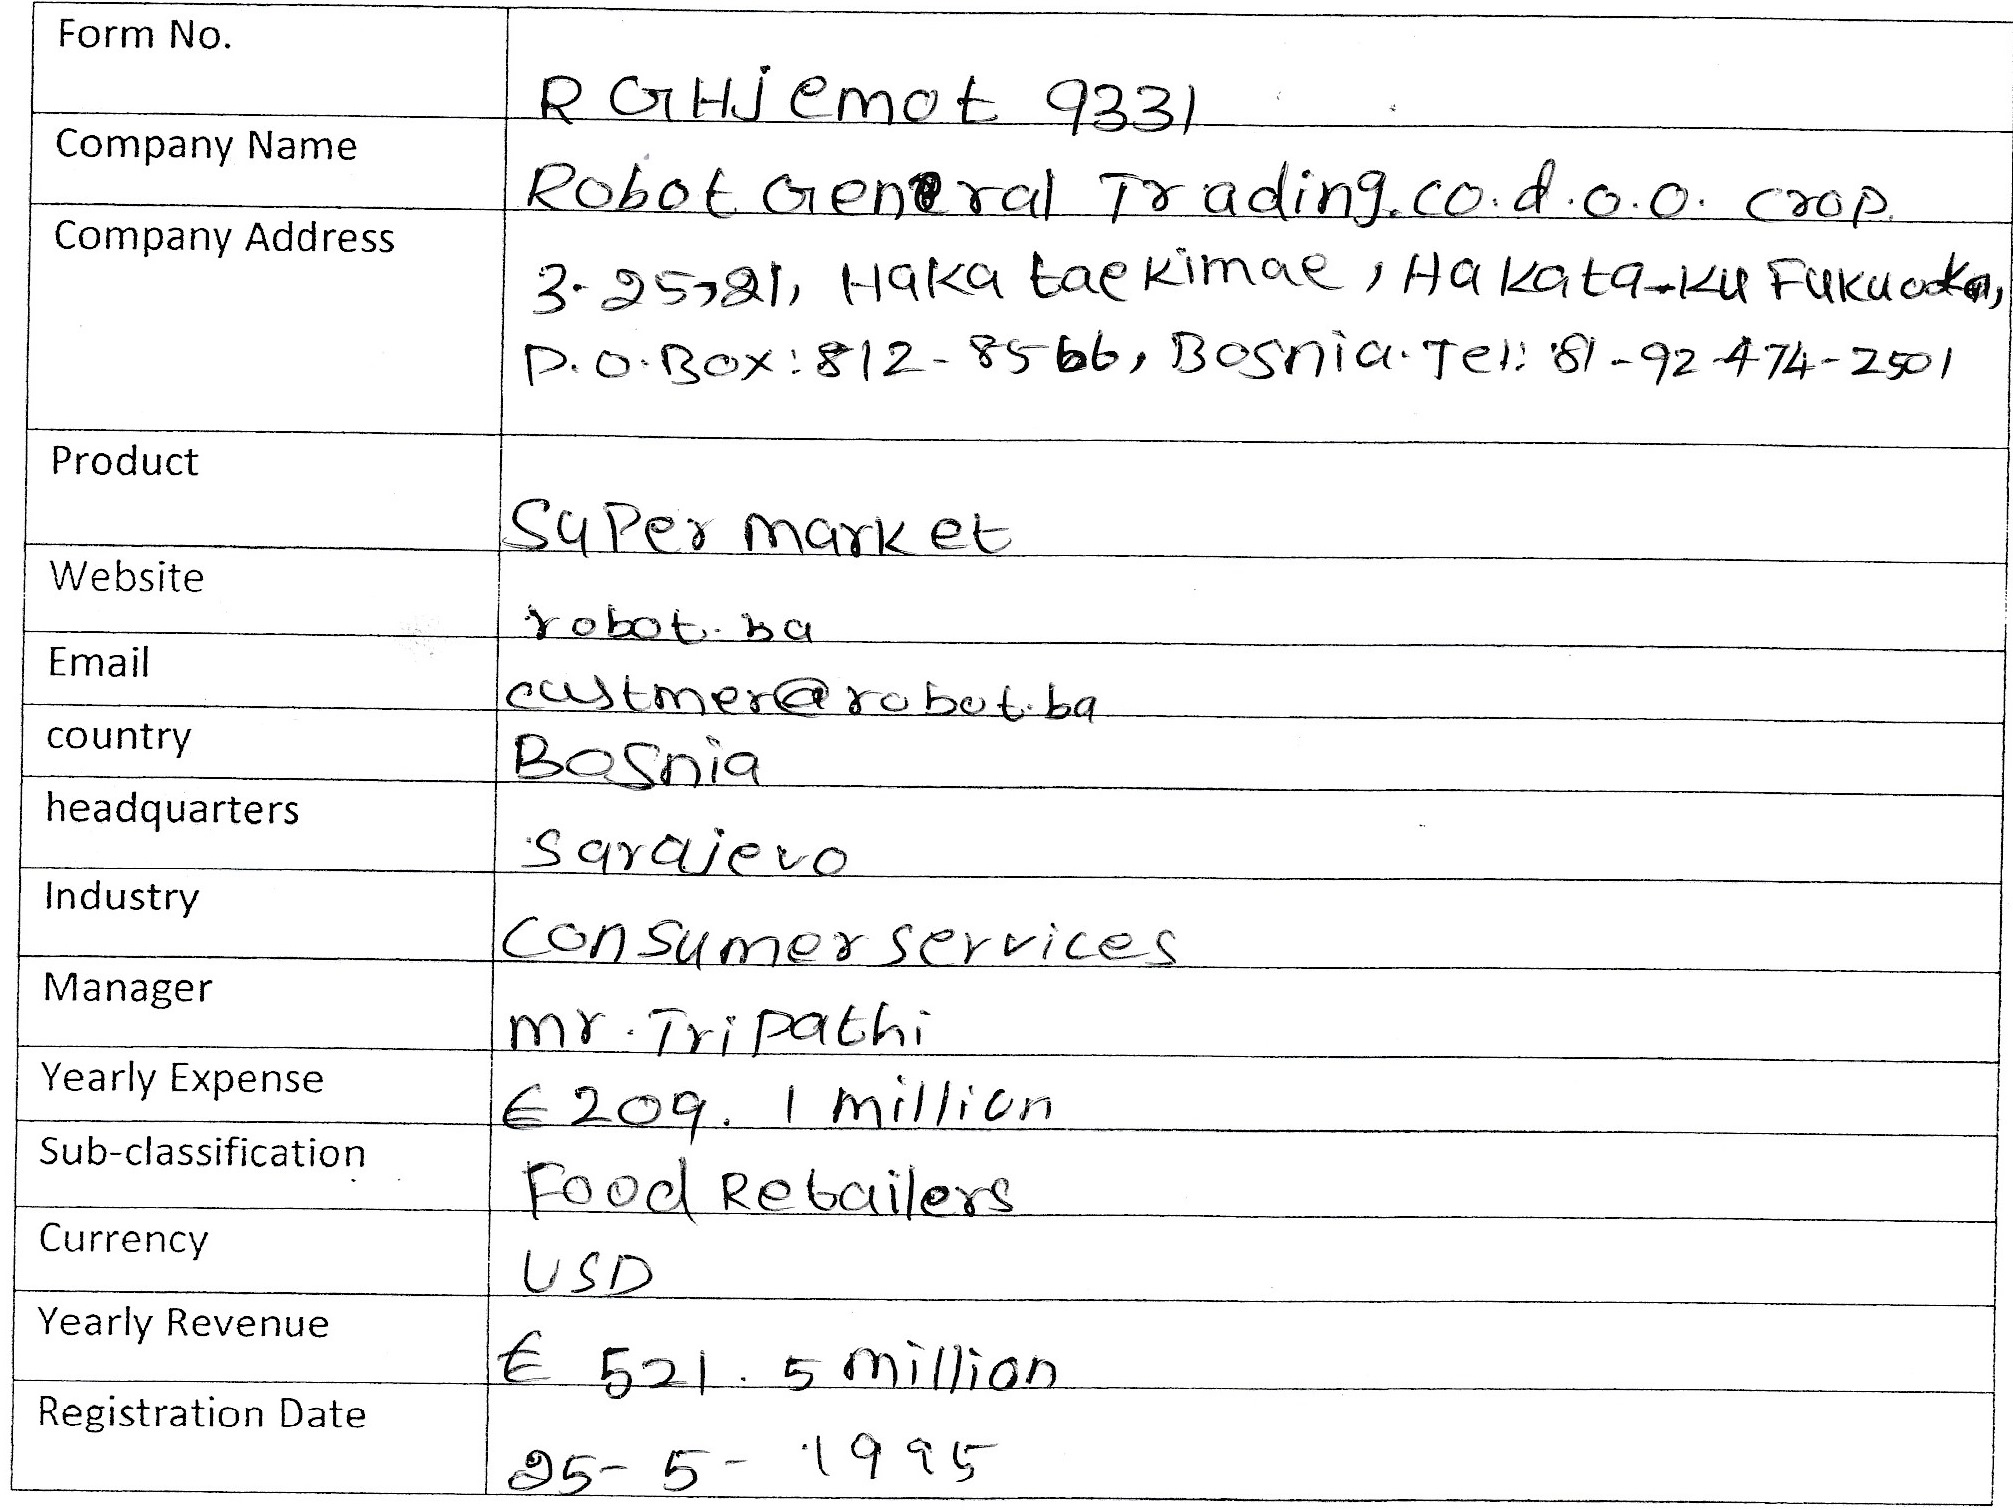 Form No.
RGHJemot 9331
Company Name
Robot General Trading.co.d.o.o. crop
Company Address
3-25-21, Hakataekimae, Hakata-ku Fukuoka,
P.O.Box: 812-8566, Bosnia. Tel: 81-92-474-2501
Product
Supermarket
Website
robot.ba
Email
custmer@robot.ba
country
Bosnia
headquarters
Sarajevo
Industry
Consumer services
Manager
mr. Tripathi
Yearly Expense
€ 209.1 million
Sub-classification
Food Retailers
Currency
USD
Yearly Revenue
€ 521.5 million
Registration Date
25-5-1995